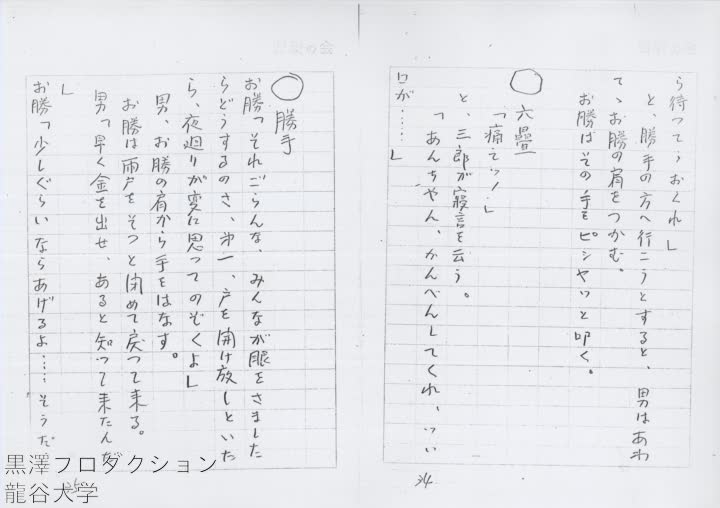 ら待つてゝおくれ」
と、勝手の方へ行こうとすると、男はあわ
てゝお勝の肩をつかむ。
お勝はその手をピシヤッと叩く。
○ 六疊
「痛てッ！」
と、三郎が寝言を云う。
「あんちやん、かんべんしてくれ、つい
口が……」
34
○ 勝手
お勝「それごらんな、みんなが眼をさました
らどうするのさ、第一、戸を開け放しといた
ら、夜廻りが変に思ってのぞくよ」
男、お勝の肩から手をはなす。
お勝は雨戸をそつと閉めて戻つて来る。
男「早く金を出せ、あると知つて来たんだ
」
お勝「少しぐらいならあげるよ……そうだ
黒澤プロダクション
龍谷大学